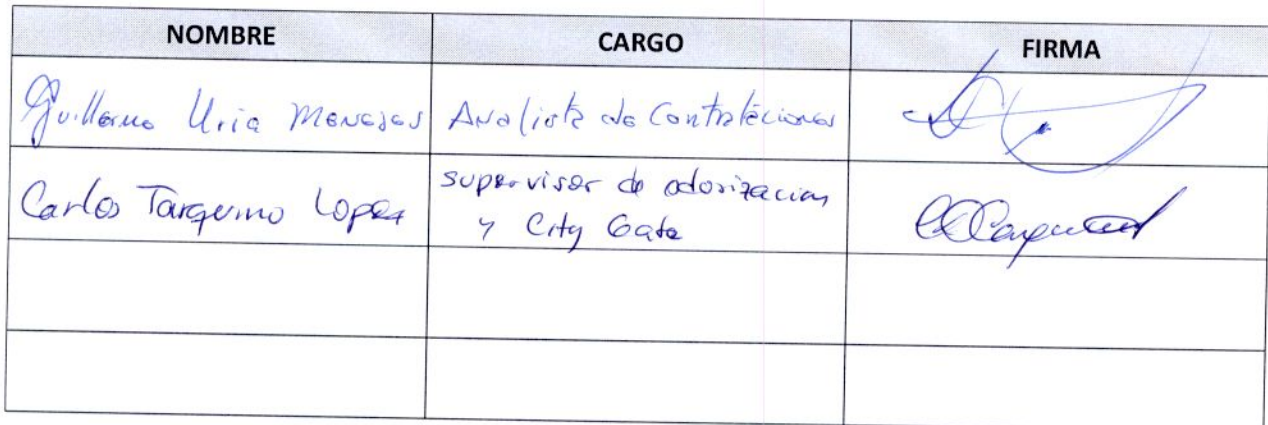 NOMBRE CARGO FIRMA
Guillermo Uria Meneses Analista de Contrataciones
Carlos Tarquino Lopez supervisor de odorizacion
y City Gate